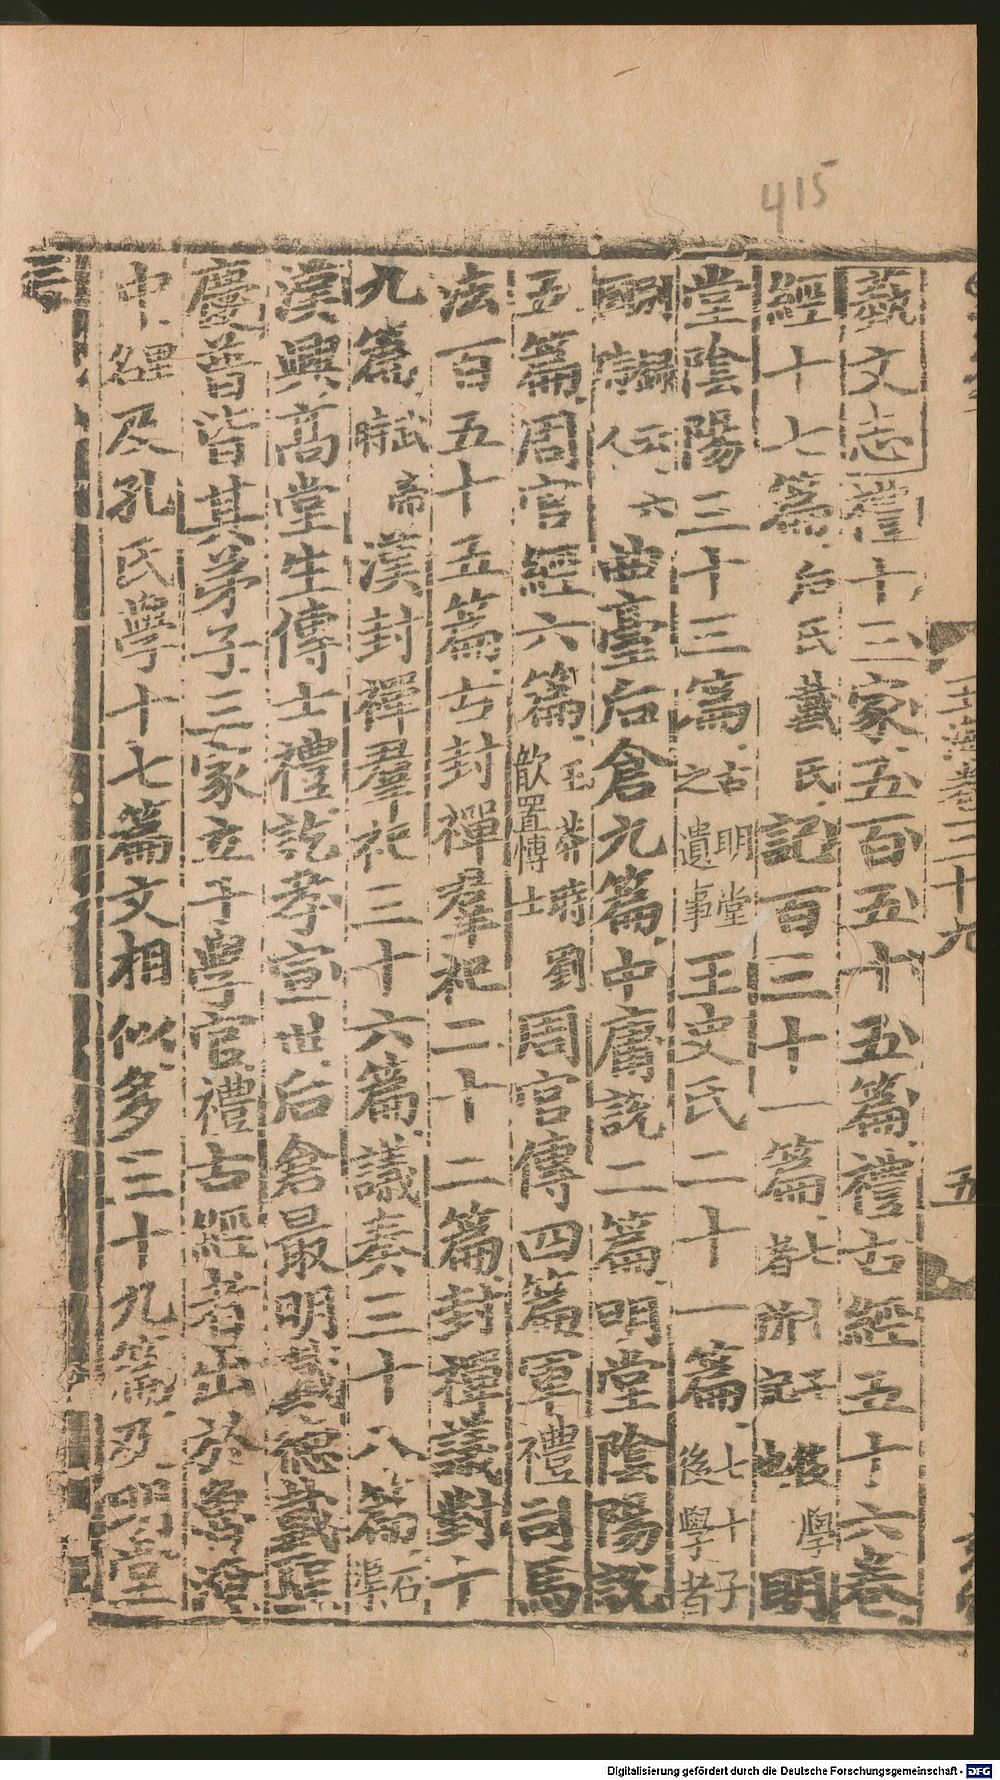 415
藝文志禮十三家五百五十五篇禮古經五十六卷
經十七篇后氏戴氏記百三十一篇七十子後學者所記也明
堂陰陽三十三篇古明堂之遺事王史氏二十一篇七十子後學者
曲臺后倉九篇中庸說二篇明堂陰陽說
五篇周官經六篇王莽時劉歆置博士周官傳四篇軍禮司馬
法百五十五篇古封禪羣祀二十二篇封禪議對十
九篇武帝時漢封禪羣祀三十六篇議奏三十八篇石渠
漢興高堂生傳士禮訖孝宣世后倉最明戴德戴聖
慶普皆其弟子三家立于學官禮古經者出於魯淹
中經及孔氏學十七篇文相似多三十九篇及明堂
玉海卷三十九
五
Digitalisierung gefördert durch die Deutsche Forschungsgemeinschaft - DFG